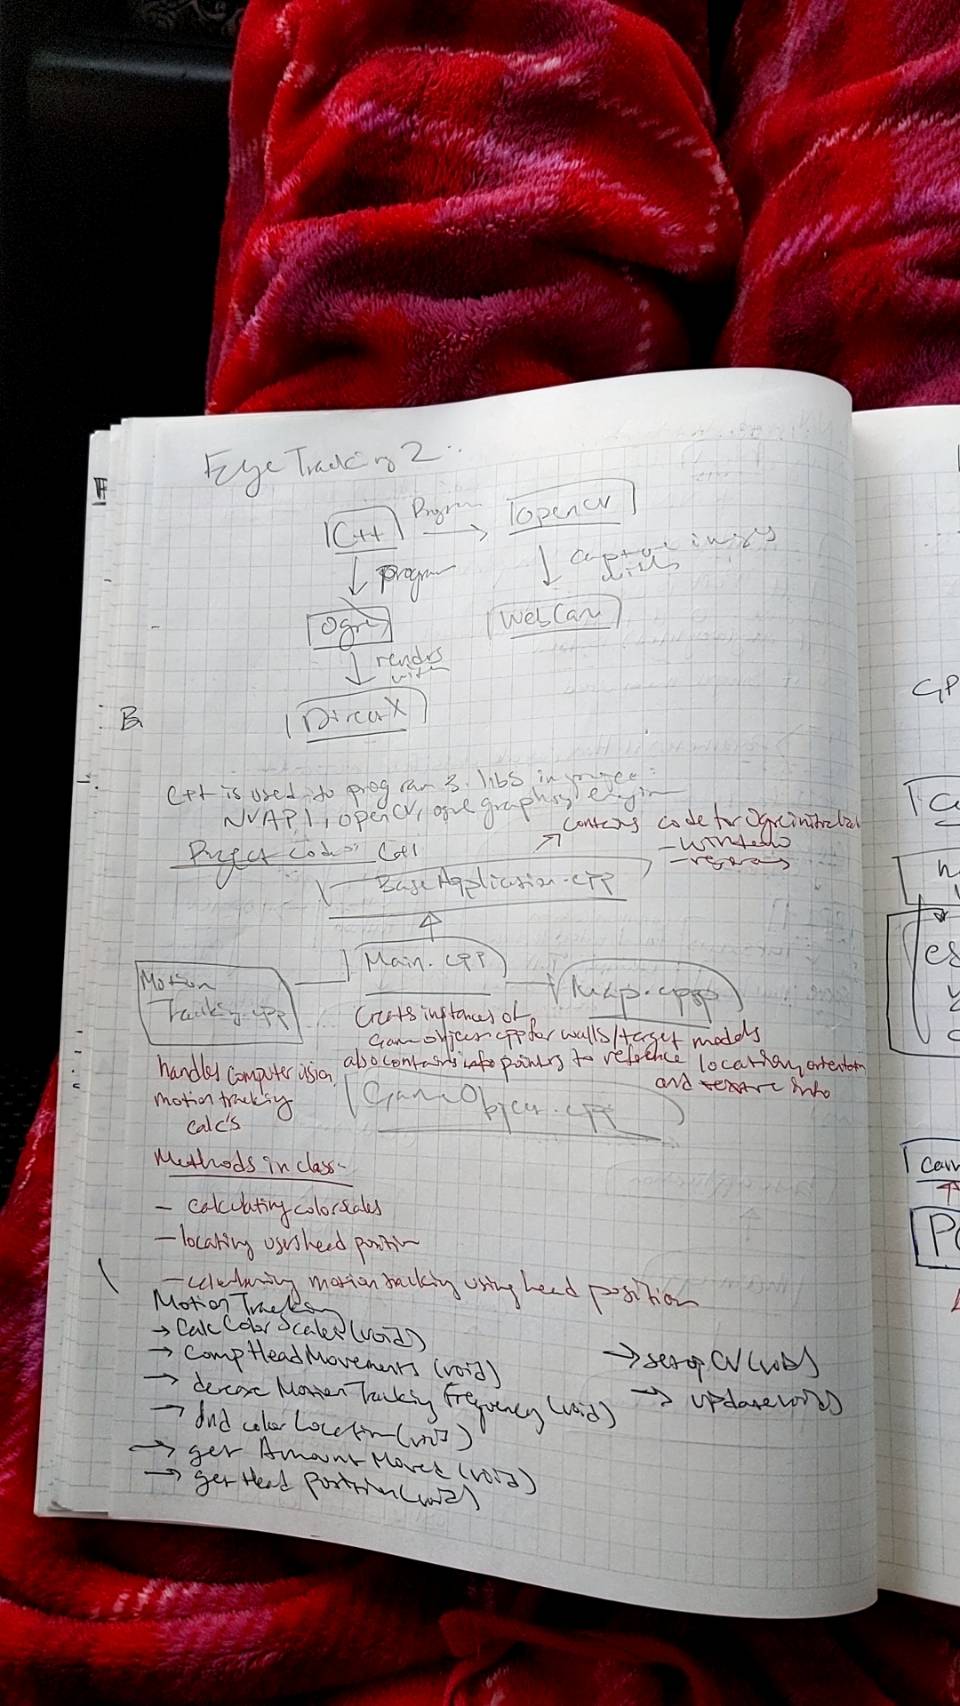 Eye Tracking 2:
C++ Program OpenCV
program capture
Ogre WebCam
renders
with
DirectX
B
C++ is used to program 3 libs in
NVAPI, OpenCV, ogre graphics engin
contains code for Ogre
Project code:
- window
BaseApplication.cpp
Main.cpp
Motion
Tracking.cpp
Map.cpp
Creats instances of
GameObject.cpp for walls/target models
also contains pointers to reference location, orientation
and texture info
handles computer vision,
motion tracking
calc's
GameObject.cpp
Methods in class-
- calculating colorscales
- locating users head position
- motion tracking using head position
Motion Tracking
→ CalcColorScales(void)
→ Comp Head Movements (void)
→ setupCV(void)
→ Motion Tracking Frequency (void)
→ update(void)
→ find color Location(void)
→ get Amount Moved (void)
→ get Head Position(void)
GP
Cam